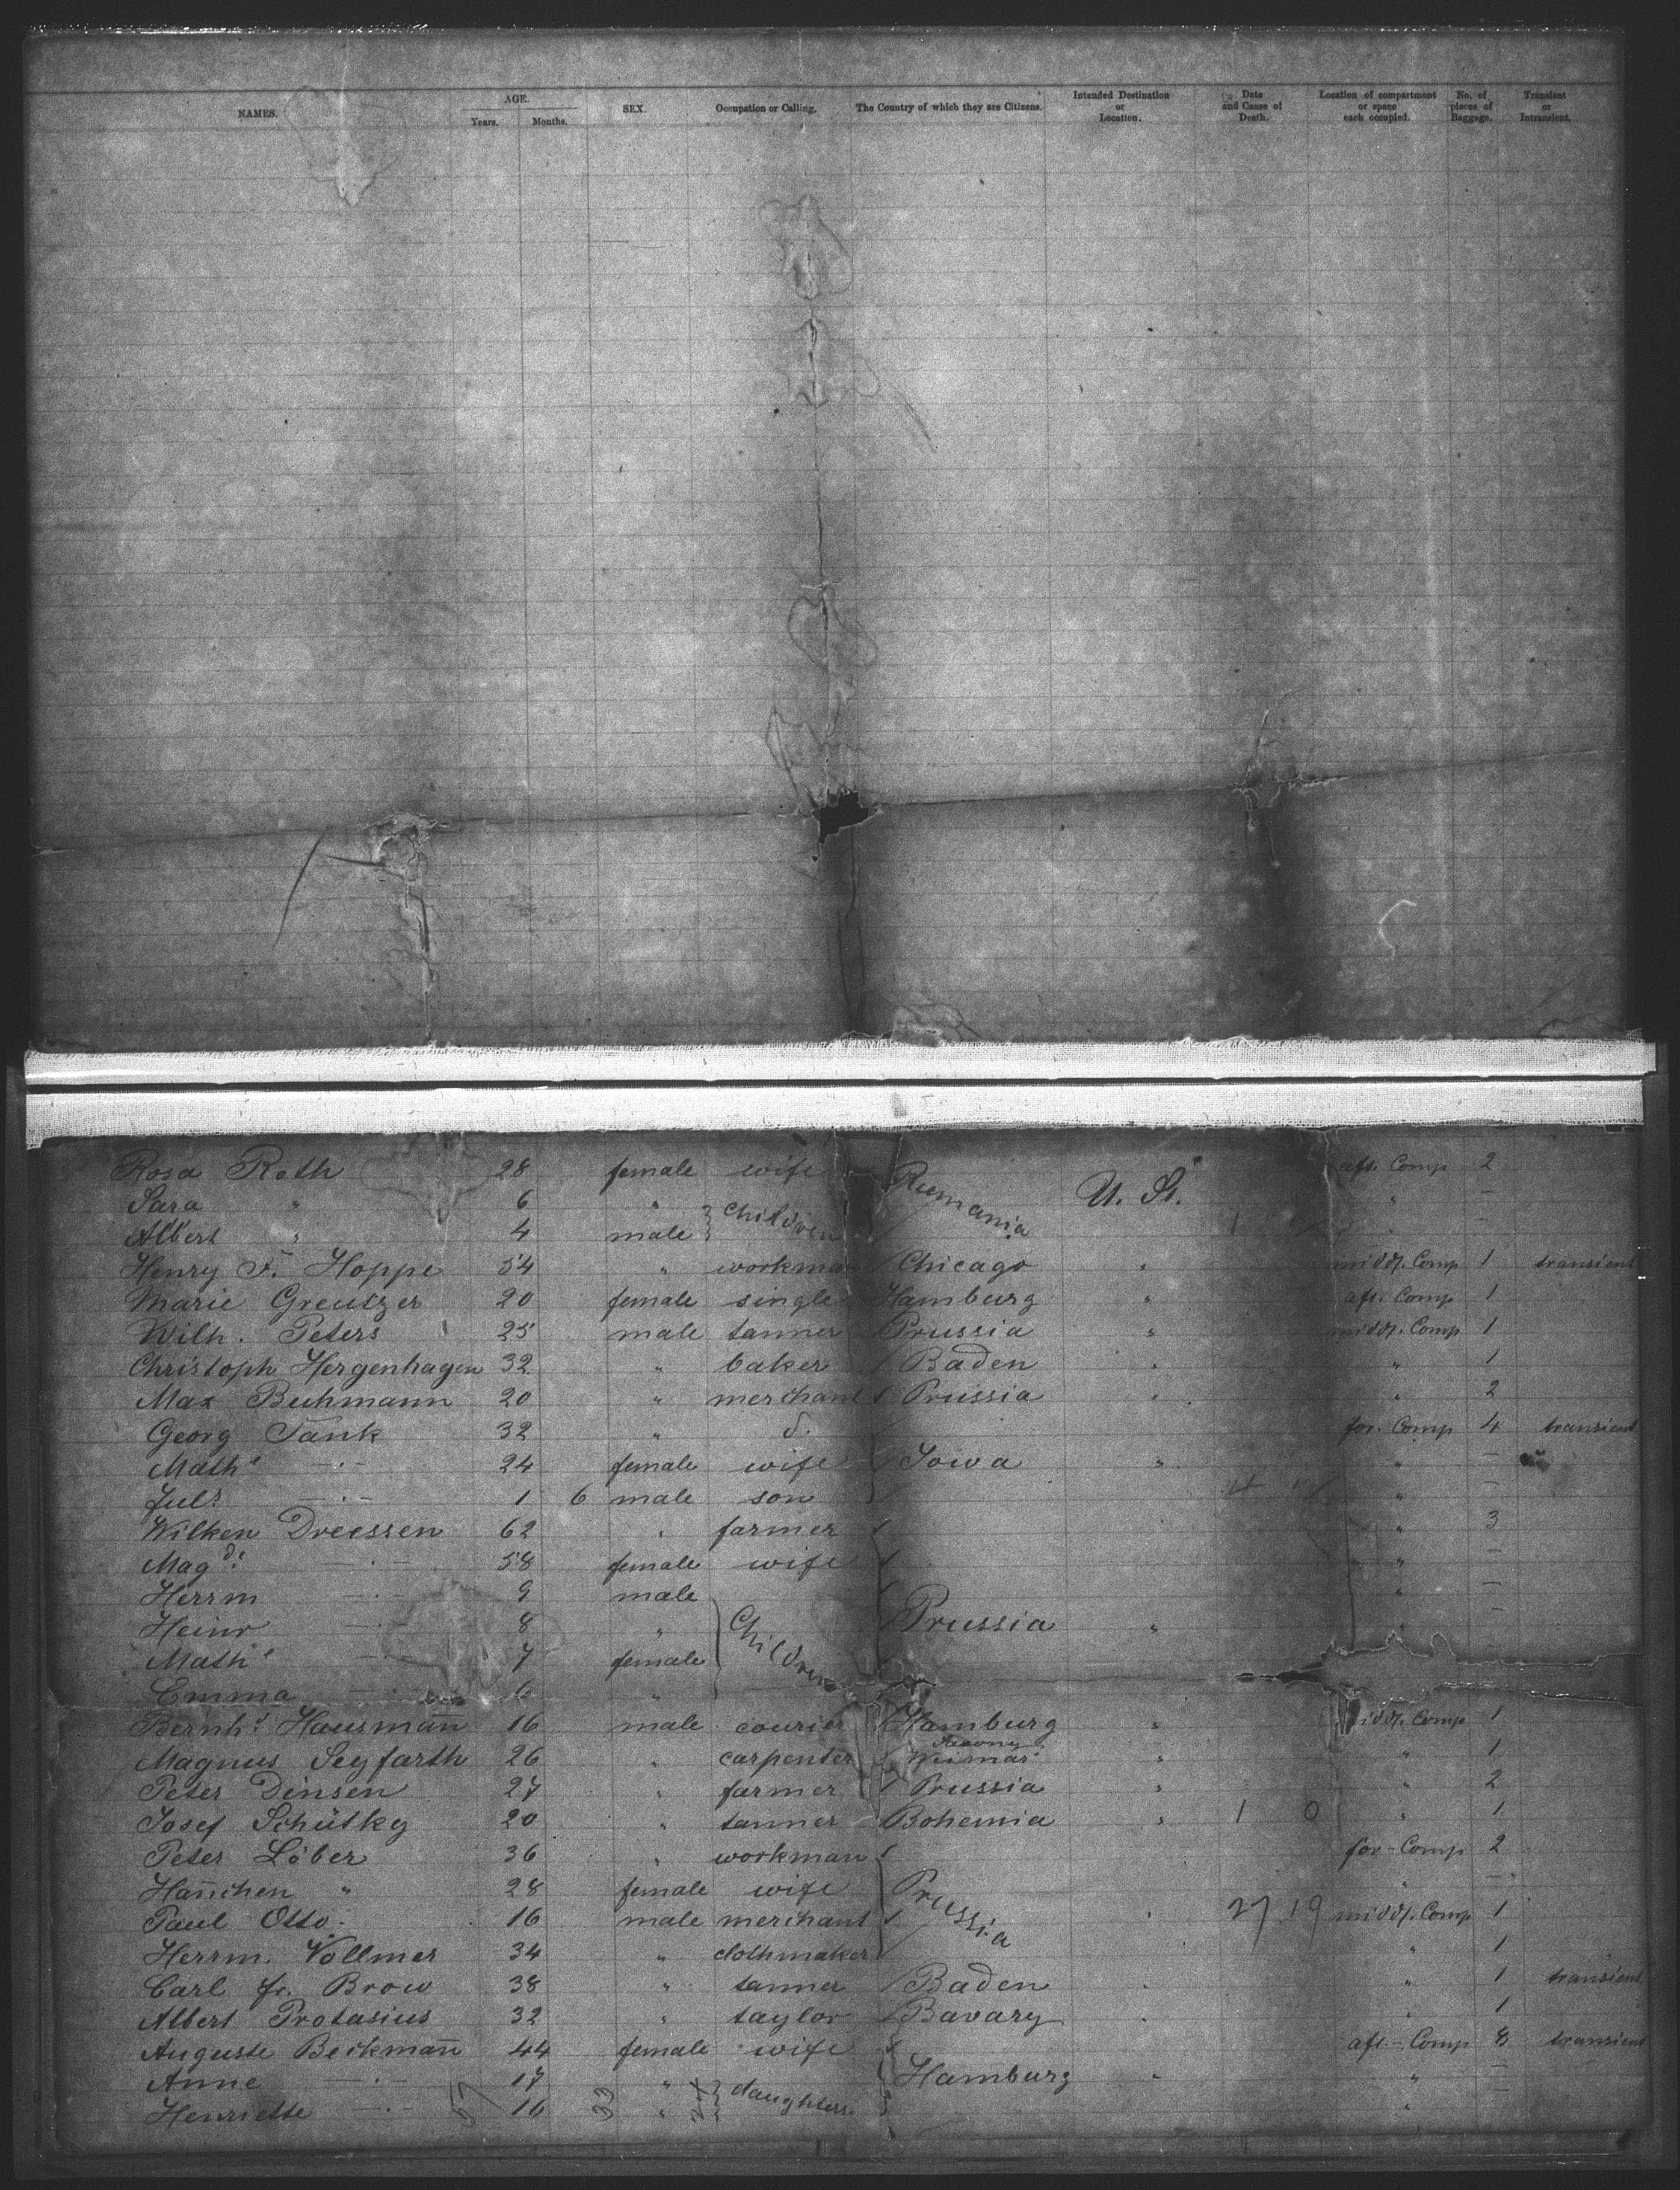 NAMES. AGE. Years. Months. SEX. Occupation or Calling. The Country of which they are Citizens. Intended Destination or Location. Date and Cause of Death. Location of compartment or space each occupied. No. of pieces of Baggage. Transient or Intransient.
Rosa Roth 28 female wife Rumania U. St. aft. Comp 2
Sara " 6 " children " –
Albert " 4 male 1 " –
Henry F. Hoppe 54 " workman Chicago " middl. Comp 1 transient
Marie Greutzer 20 female single Hamburg " aft. Comp 1
Wilh. Peters 25 male tanner Prussia " middl. Comp 1
Christoph Hergenhagen 32 " baker Baden " " 1
Max Buhmann 20 " merchant Prussia " " 2
Georg Tank 32 " d. for. Comp 4 transient
Math.e –"– 24 female wife Iowa " " –
Jul.s –"– 1 6 male son 4 " –
Wilken Dreessen 62 " farmer " 3
Mag.d. –"– 58 female wife " –
Herrm –"– 9 male " –
Heinr –"– 8 " Children Prussia " " –
Math.e – 7 female
Emma –"– 6 "
Bernh.d Hausman̄n 16 male courier Hamburg " middl. Comp 1
Magnus Seyfarth 26 " carpenter Weimar " " 1
Peter Dinsen 27 " farmer Prussia " " 2
Josef Schütky 20 " tanner Bohemia " 1 0 " 1
Peter Löber 36 " workman for-Comp 2
Han̄chen " 28 female wife Prussia " –
Paul Otto. 16 male merchant " 27 19 middl. Comp 1
Herrm. Vollmer 34 " clothmaker " 1
Carl fr. Brow 38 " tanner Baden " " 1 transient
Albert Protasius 32 " taylor Bavary " " 1
Auguste Beckman̄n 44 female wife aft-Comp 8 transient
Anne –"– 17 " daughters Hamburg " " –
Henriette –"– 57 16 33 " 24 " –